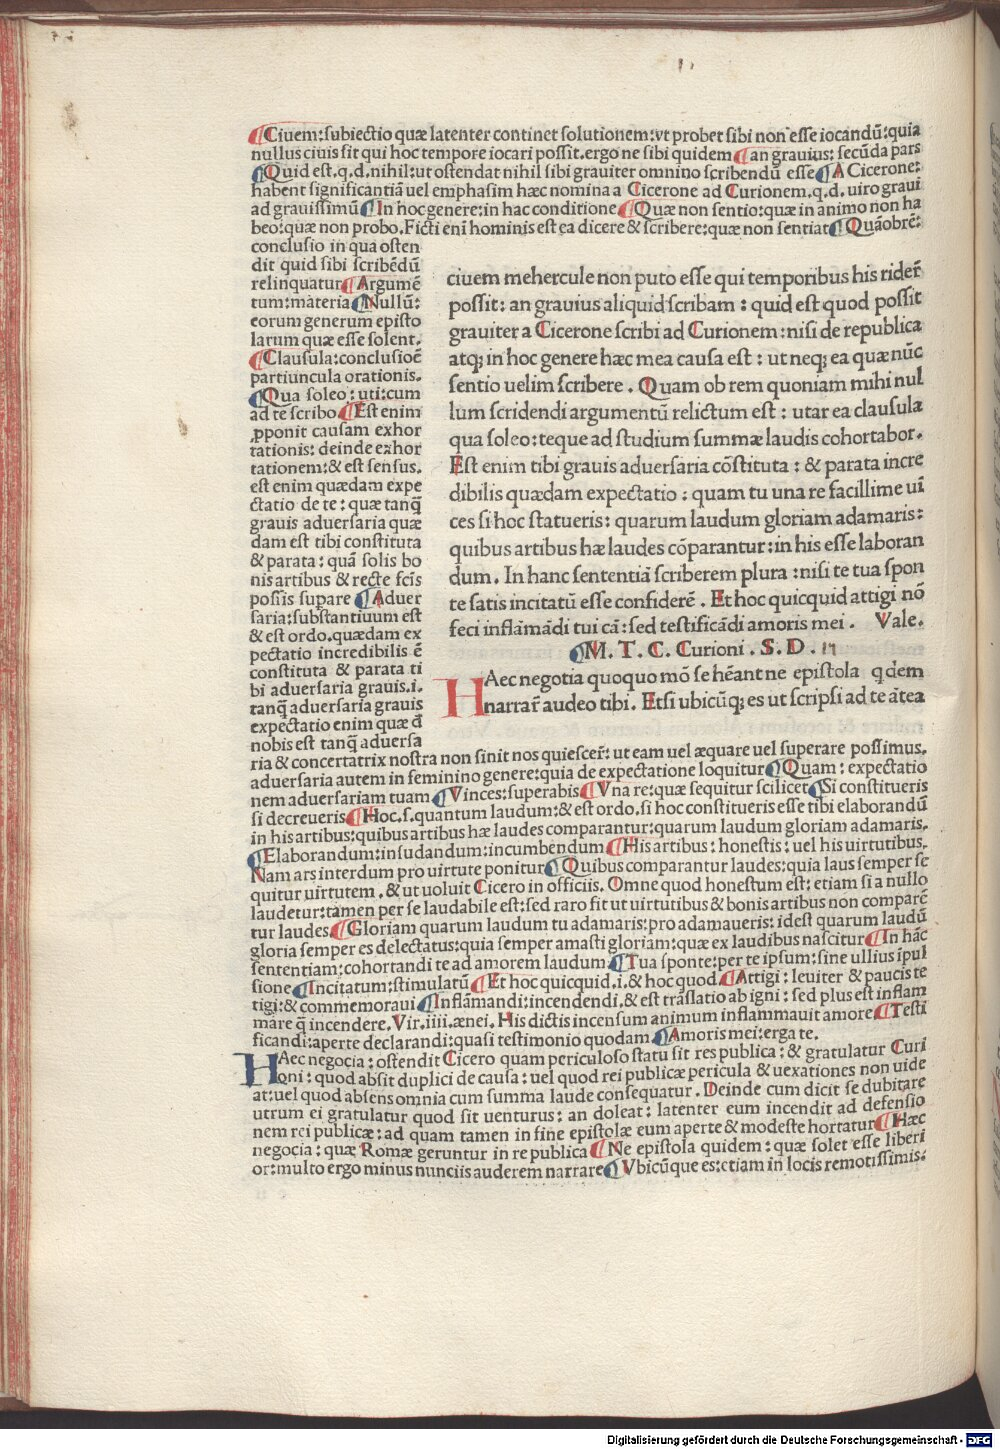 ¶Ciuem:subiectio quæ latenter continet solutionem:vt probet sibi non esse iocandũ:quia
nullus ciuis sit qui hoc tempore iocari possit.ergo ne sibi quidem ¶an grauius:secũda pars
¶Quid est.q.d.nihil:ut ostendat nihil sibi grauiter omnino scribendũ esse ¶A Cicerone:
habent significantiã uel emphasim hæc nomina a Cicerone ad Curionem.q.d.uiro graui
ad grauissimũ ¶In hoc genere:in hac conditione ¶Quæ non sentio:quæ in animo non ha
beo:quæ non probo.Ficti eni hominis est ea dicere & scribere:quæ non sentiat ¶Quãobrẽ:
conclusio in qua osten
dit quid sibi scribẽdũ
relinquatur ¶Argumẽ
tum:materia ¶Nullũ:
eorum generum episto
larum quæ esse solent.
¶Clausula:conclusiõe
partiuncula orationis.
¶Qua soleo:uti:cum
ad te scribo ¶Est enim
ꝓponit causam exhor
tationis:deinde exhor
tationem:& est sensus.
est enim quædam expe
ctatio de te:quæ tanq̃
grauis aduersaria quæ
dam est tibi constituta
& parata:quã solis bo
nis artibus & recte fcis
possis supare ¶Aduer
saria:substantiuum est
& est ordo.quædam ex
pectatio incredibilis ẽ
constituta & parata ti
bi aduersaria grauis.i.
tanq̃ aduersaria grauis
expectatio enim quæ d̃
nobis est tanq̃ aduersa
ciuem mehercule non puto esse qui temporibus his riderẽ
possit: an grauius aliquid scribam : quid est quod possit
grauiter a Cicerone scribi ad Curionem:nisi de republica
atq; in hoc genere hæc mea causa est : ut neq; ea quæ nũc
sentio uelim scribere . Quam ob rem quoniam mihi nul
lum scridendi argumentũ relictum est : utar ea clausula
qua soleo:teque ad studium summæ laudis cohortabor.
Est enim tibi grauis aduersaria cõstituta : & parata incre
dibilis quædam expectatio : quam tu una re facillime ui
ces si hoc statueris: quarum laudum gloriam adamaris:
quibus artibus hæ laudes cõparantur:in his esse laboran
dum. In hanc sententiã scriberem plura :nisi te tua spon
te satis incitatũ esse confiderẽ . Et hoc quicquid attigi nõ
feci inflãmãdi tui cã:sed testificãdi amoris mei . Vale.
¶M. T. C. Curioni . S. D .
HAec negotia quoquo mõ se hẽant ne epistola qdem
narrar̃ audeo tibi. Etsi ubicũq; es ut scripsi ad te ãtea
ria & concertatrix nostra non sinit nos quiescer̃:ut eam uel æquare uel superare possimus.
aduersaria autem in feminino genere:quia de expectatione loquitur ¶Quam:expectatio
nem aduersariam tuam ¶Vinces:superabis ¶Vna re:quæ sequitur scilicet ¶Si constitueris
si decreueris ¶Hoc.s.quantum laudum:& est ordo.si hoc constitueris esse tibi elaborandũ
in his artibus:quibus artibus hæ laudes comparantur:quarum laudum gloriam adamaris.
¶Elaborandum:insudandum:incumbendum ¶His artibus:honestis:uel his uirtutibus.
Nam ars interdum pro uirtute ponitur ¶Quibus comparantur laudes:quia laus semper se
quitur uirtutem.& ut uoluit Cicero in officiis.Omne quod honestum est:etiam si a nullo
laudetur:tamen per se laudabile est:sed raro fit ut uirtutibus & bonis artibus non comparẽ
tur laudes ¶Gloriam quarum laudum tu adamaris:pro adamaueris:idest quarum laudũ
gloria semper es delectatus:quia semper amasti gloriam:quæ ex laudibus nascitur ¶In hãc
sententiam:cohortandi te ad amorem laudum ¶Tua sponte:per te ipsum:sine ullius ipul
sione ¶Incitatum:stimulatũ ¶Et hoc quicquid.i.& hoc quod ¶Attigi:leuiter & paucis te
tigi:& commemoraui ¶Inflãmandi:incendendi.& est trãslatio ab igni:sed plus est inflam
mare q̃ incendere.Vir.iiii.ænei.His dictis incensum animum inflammauit amore ¶Testi
ficandi:aperte declarandi:quasi testimonio quodam ¶Amoris mei:erga te.
HAec negocia:ostendit Cicero quam periculoso statu sit res publica:& gratulatur Curi
oni:quod absit duplici de causa:uel quod rei publicæ pericula & uexationes non uide
at:uel quod absens omnia cum summa laude consequatur.Deinde cum dicit se dubitare
utrum ei gratulatur quod sit uenturus:an doleat:latenter eum incendit ad defensio
nem rei publicæ:ad quam tamen in fine epistolæ eum aperte & modeste hortatur ¶Hæc
negocia:quæ Romæ geruntur in re publica ¶Ne epistola quidem:quæ solet esse liberi
or:multo ergo minus nunciis auderem narrare ¶Vbicũque es:etiam in locis remotissimis:
Digitalisierung gefördert durch die Deutsche Forschungsgemeinschaft - DFG